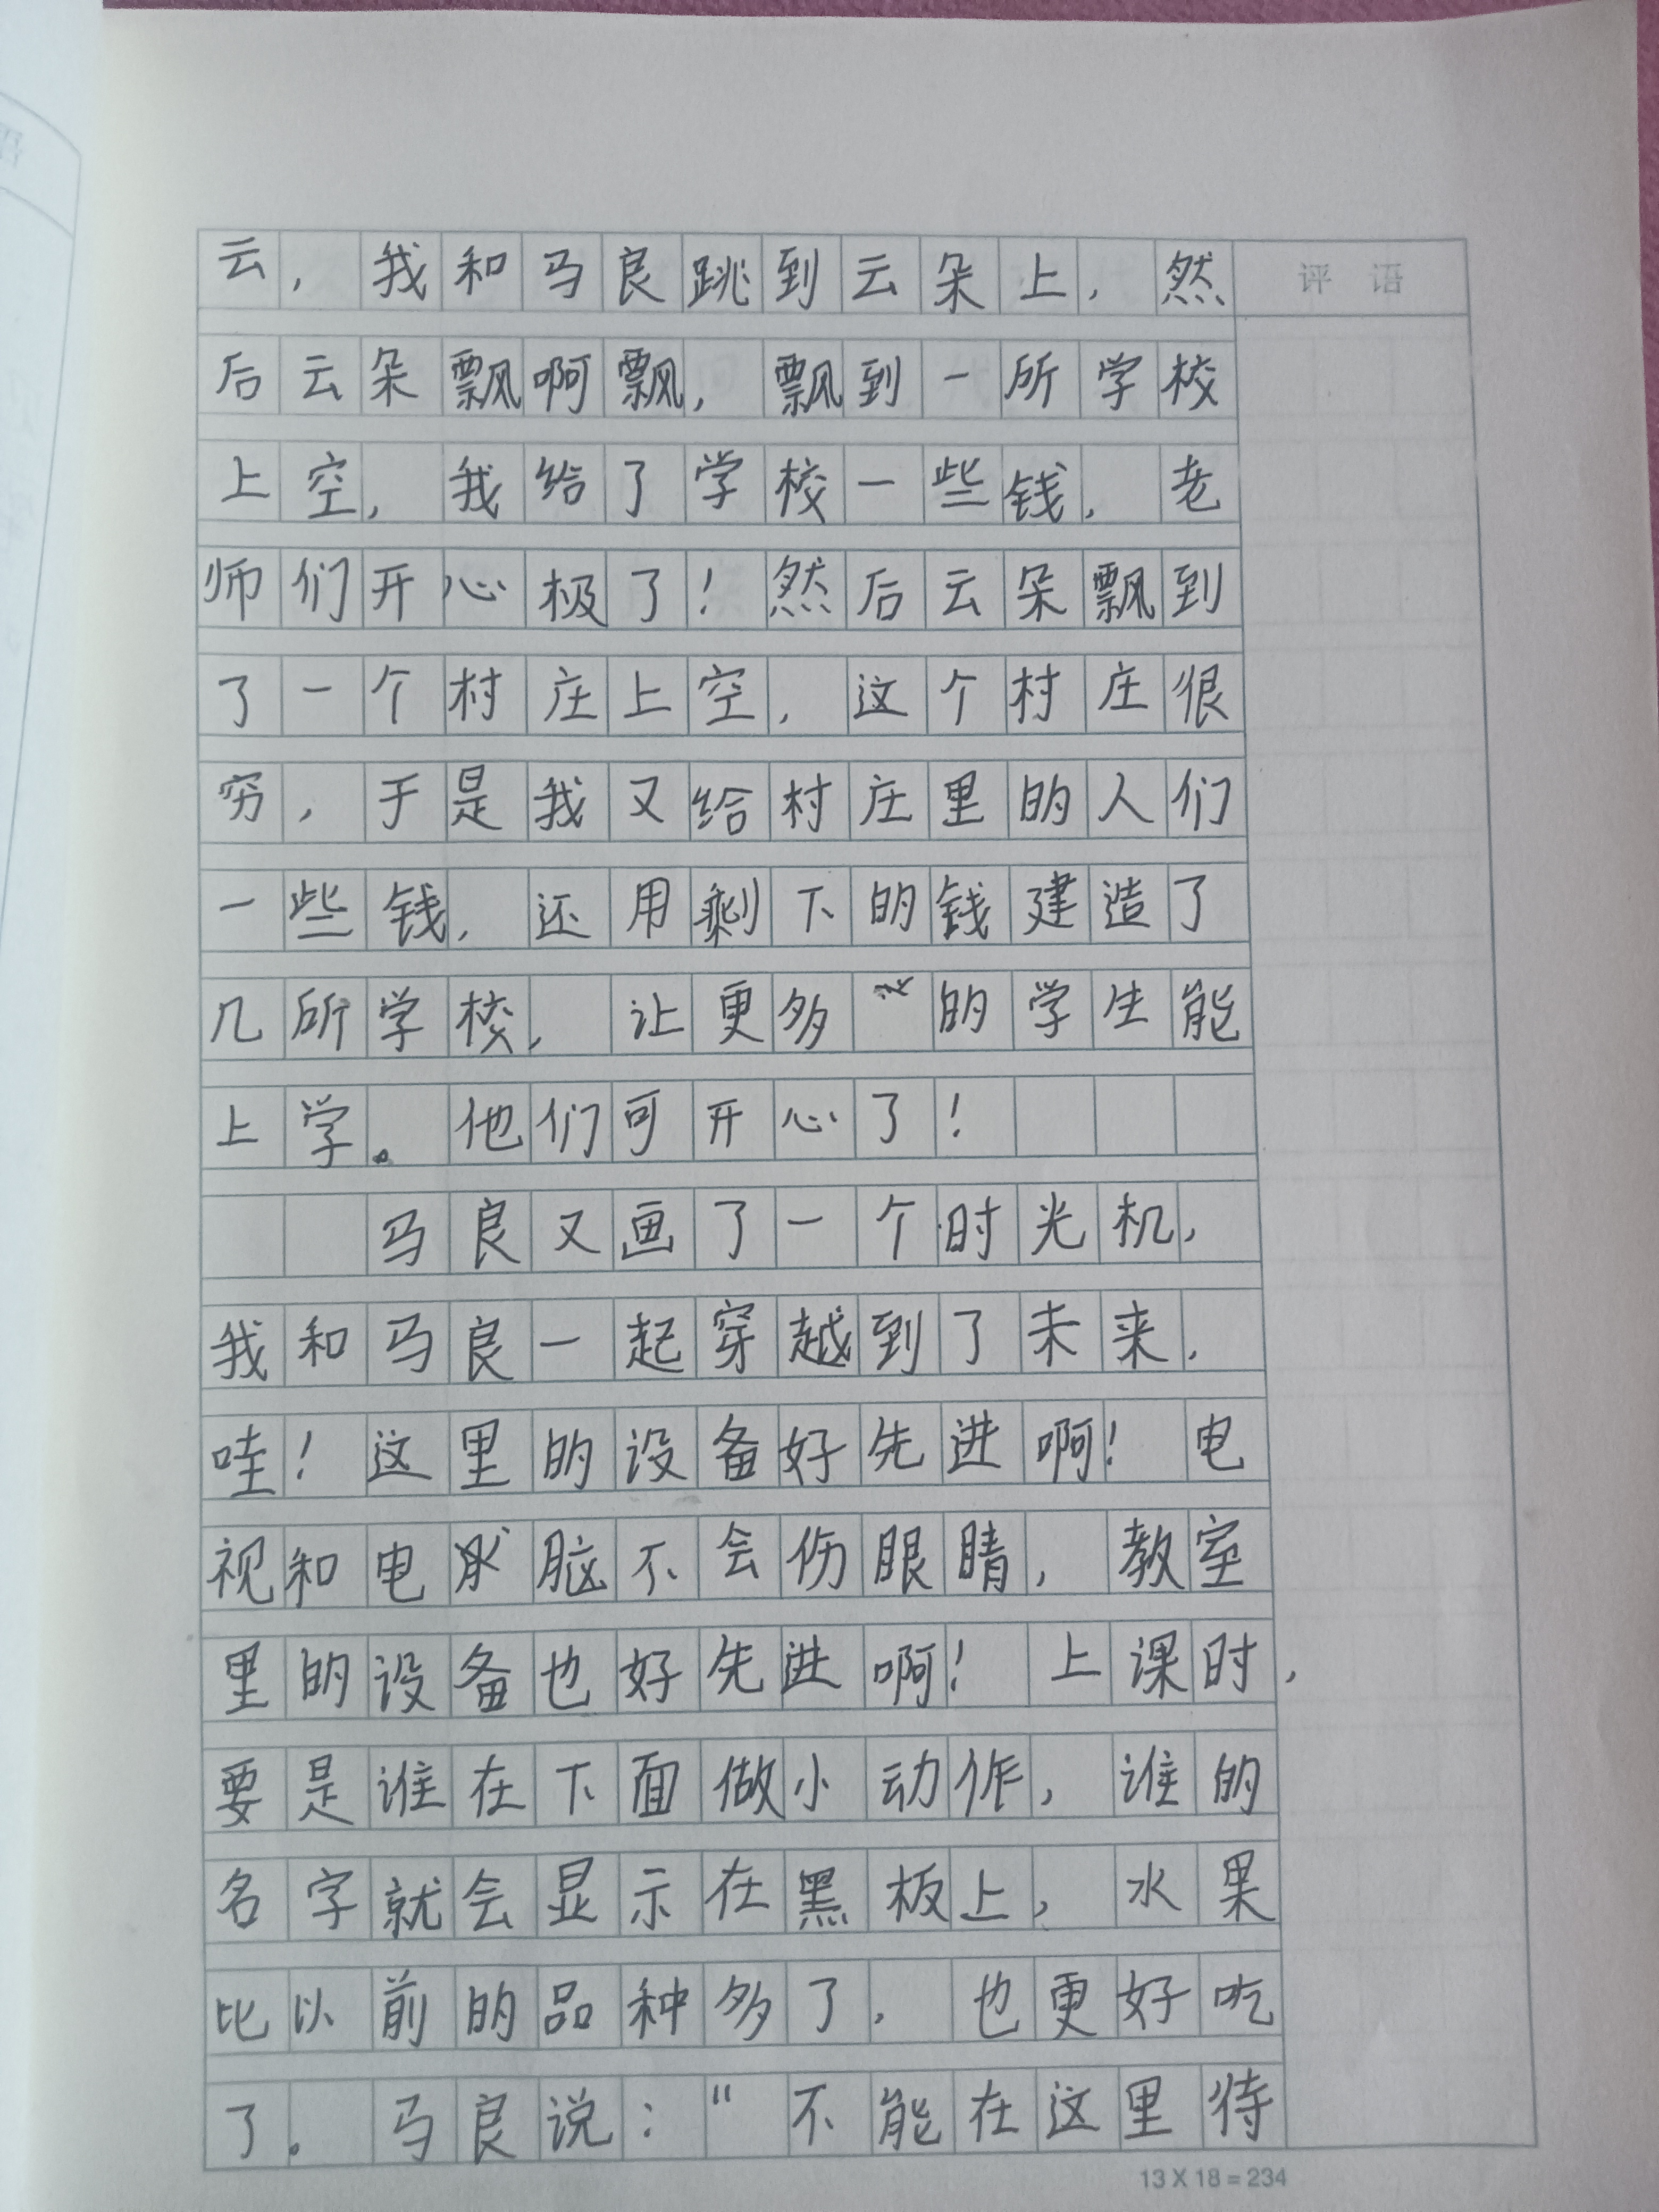 云，我和马良跳到云朵上，然
评语
后云朵飘啊飘，飘到一所学校
上空，我给了学校一些钱，老
师们开心极了！然后云朵飘到
了一个村庄上空，这个村庄很
穷，于是我又给村庄里的人们
一些钱，还用剩下的钱建造了
几所学校，让更多的学生能
上学。他们可开心了！
马良又画了一个时光机，
我和马良一起穿越到了未来，
哇！这里的设备好先进啊！电
视和电脑不会伤眼睛，教室
里的设备也好先进啊！上课时，
要是谁在下面做小动作，谁的
名字就会显示在黑板上，水果
比以前的品种多了，也更好吃
了。马良说：“不能在这里待
13 X 18 = 234